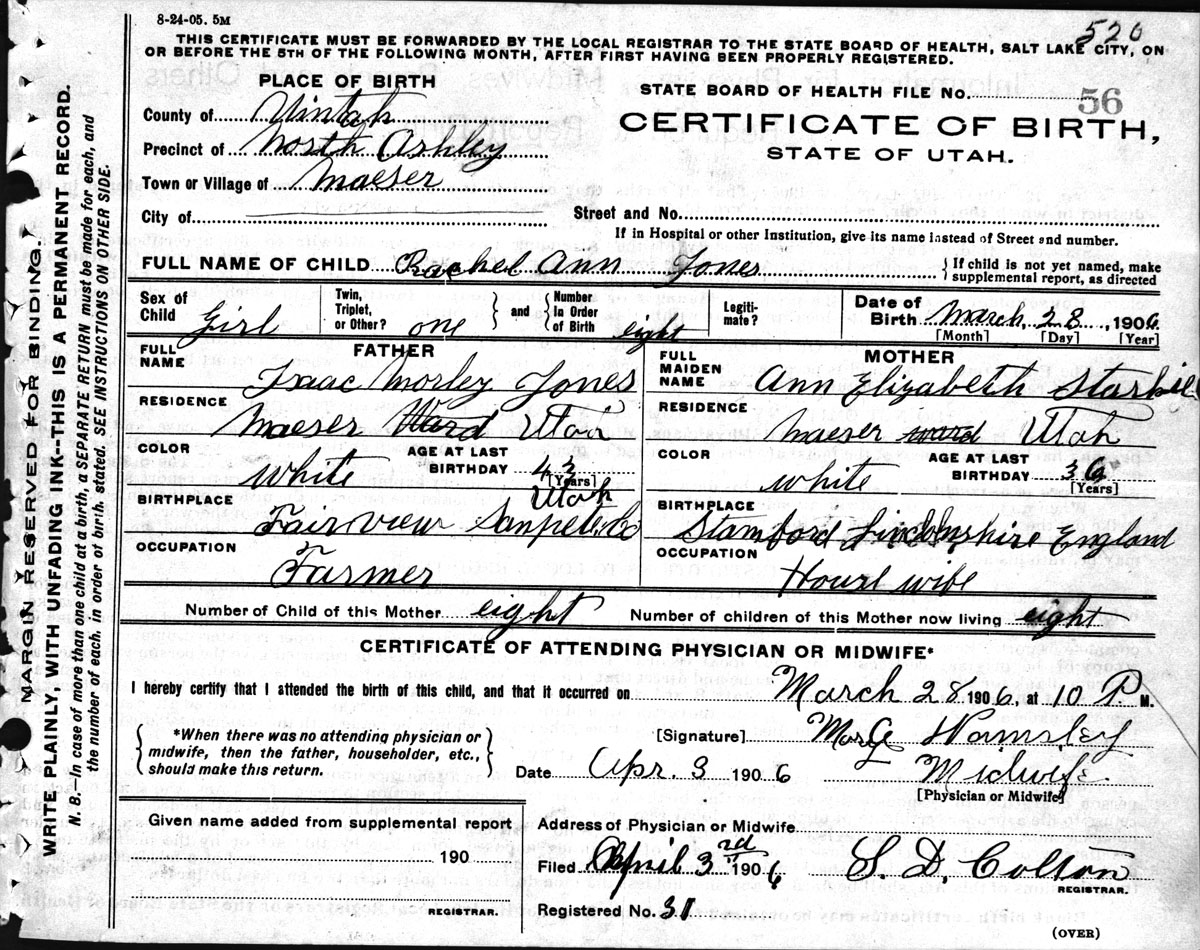 8-24-05. 5M
526
THIS CERTIFICATE MUST BE FORWARDED BY THE LOCAL REGISTRAR TO THE STATE BOARD OF HEALTH, SALT LAKE CITY, ON
OR BEFORE THE 5TH OF THE FOLLOWING MONTH, AFTER FIRST HAVING BEEN PROPERLY REGISTERED.
MARGIN RESERVED FOR BINDING.
WRITE PLAINLY, WITH UNFADING INK--THIS IS A PERMANENT RECORD.
N. B.—In case of more than one child at a birth, a SEPARATE RETURN must be made for each, and
the number of each, in order of birth, stated. SEE INSTRUCTIONS ON OTHER SIDE.
PLACE OF BIRTH
County of Uintah
Precinct of North Ashley
Town or Village of Maeser
City of
STATE BOARD OF HEALTH FILE No. 56
CERTIFICATE OF BIRTH,
STATE OF UTAH.
Street and No.
If in Hospital or other Institution, give its name instead of Street and number.
FULL NAME OF CHILD Rachel Ann Jones
{ If child is not yet named, make
supplemental report, as directed
Sex of Child Girl
Twin, Triplet, or Other? one } and { Number In Order of Birth eight
Legitimate?
Date of Birth March 28, 1906
[Month] [Day] [Year]
FATHER
FULL NAME Isaac Morley Jones
RESIDENCE
Maeser Ward Utah
COLOR White
AGE AT LAST BIRTHDAY 43
[Years]
BIRTHPLACE
Fairview Sanpete Co Utah
OCCUPATION
Farmer
MOTHER
FULL MAIDEN NAME Ann Elizabeth
RESIDENCE
Maeser ward Utah
COLOR white
AGE AT LAST BIRTHDAY 36
[Years]
BIRTHPLACE
Stamford Lincolnshire England
OCCUPATION
House wife
Number of Child of this Mother eight Number of children of this Mother now living eight
CERTIFICATE OF ATTENDING PHYSICIAN OR MIDWIFE*
I hereby certify that I attended the birth of this child, and that it occurred on March 28 1906, at 10 P. M.
{ *When there was no attending physician or
midwife, then the father, householder, etc.,
should make this return. }
[Signature] Wamsley
Date Apr. 3 1906 Midwife
[Physician or Midwife]
Given name added from supplemental report
190
REGISTRAR.
Address of Physician or Midwife
Filed April 3rd 1906 S. D. Colton
REGISTRAR.
Registered No. 31
(OVER)